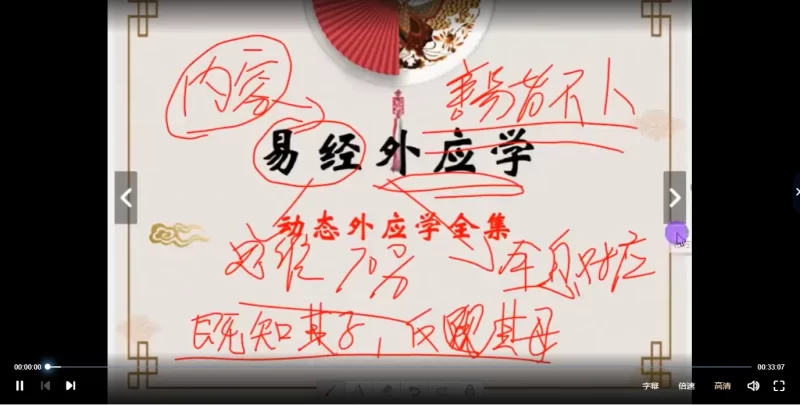 内容
善易者不卜
易经外应学
动态外应学全集
全息对应
既知其子，反 其母
00:00:00
00:33:07
字幕 倍速 高清